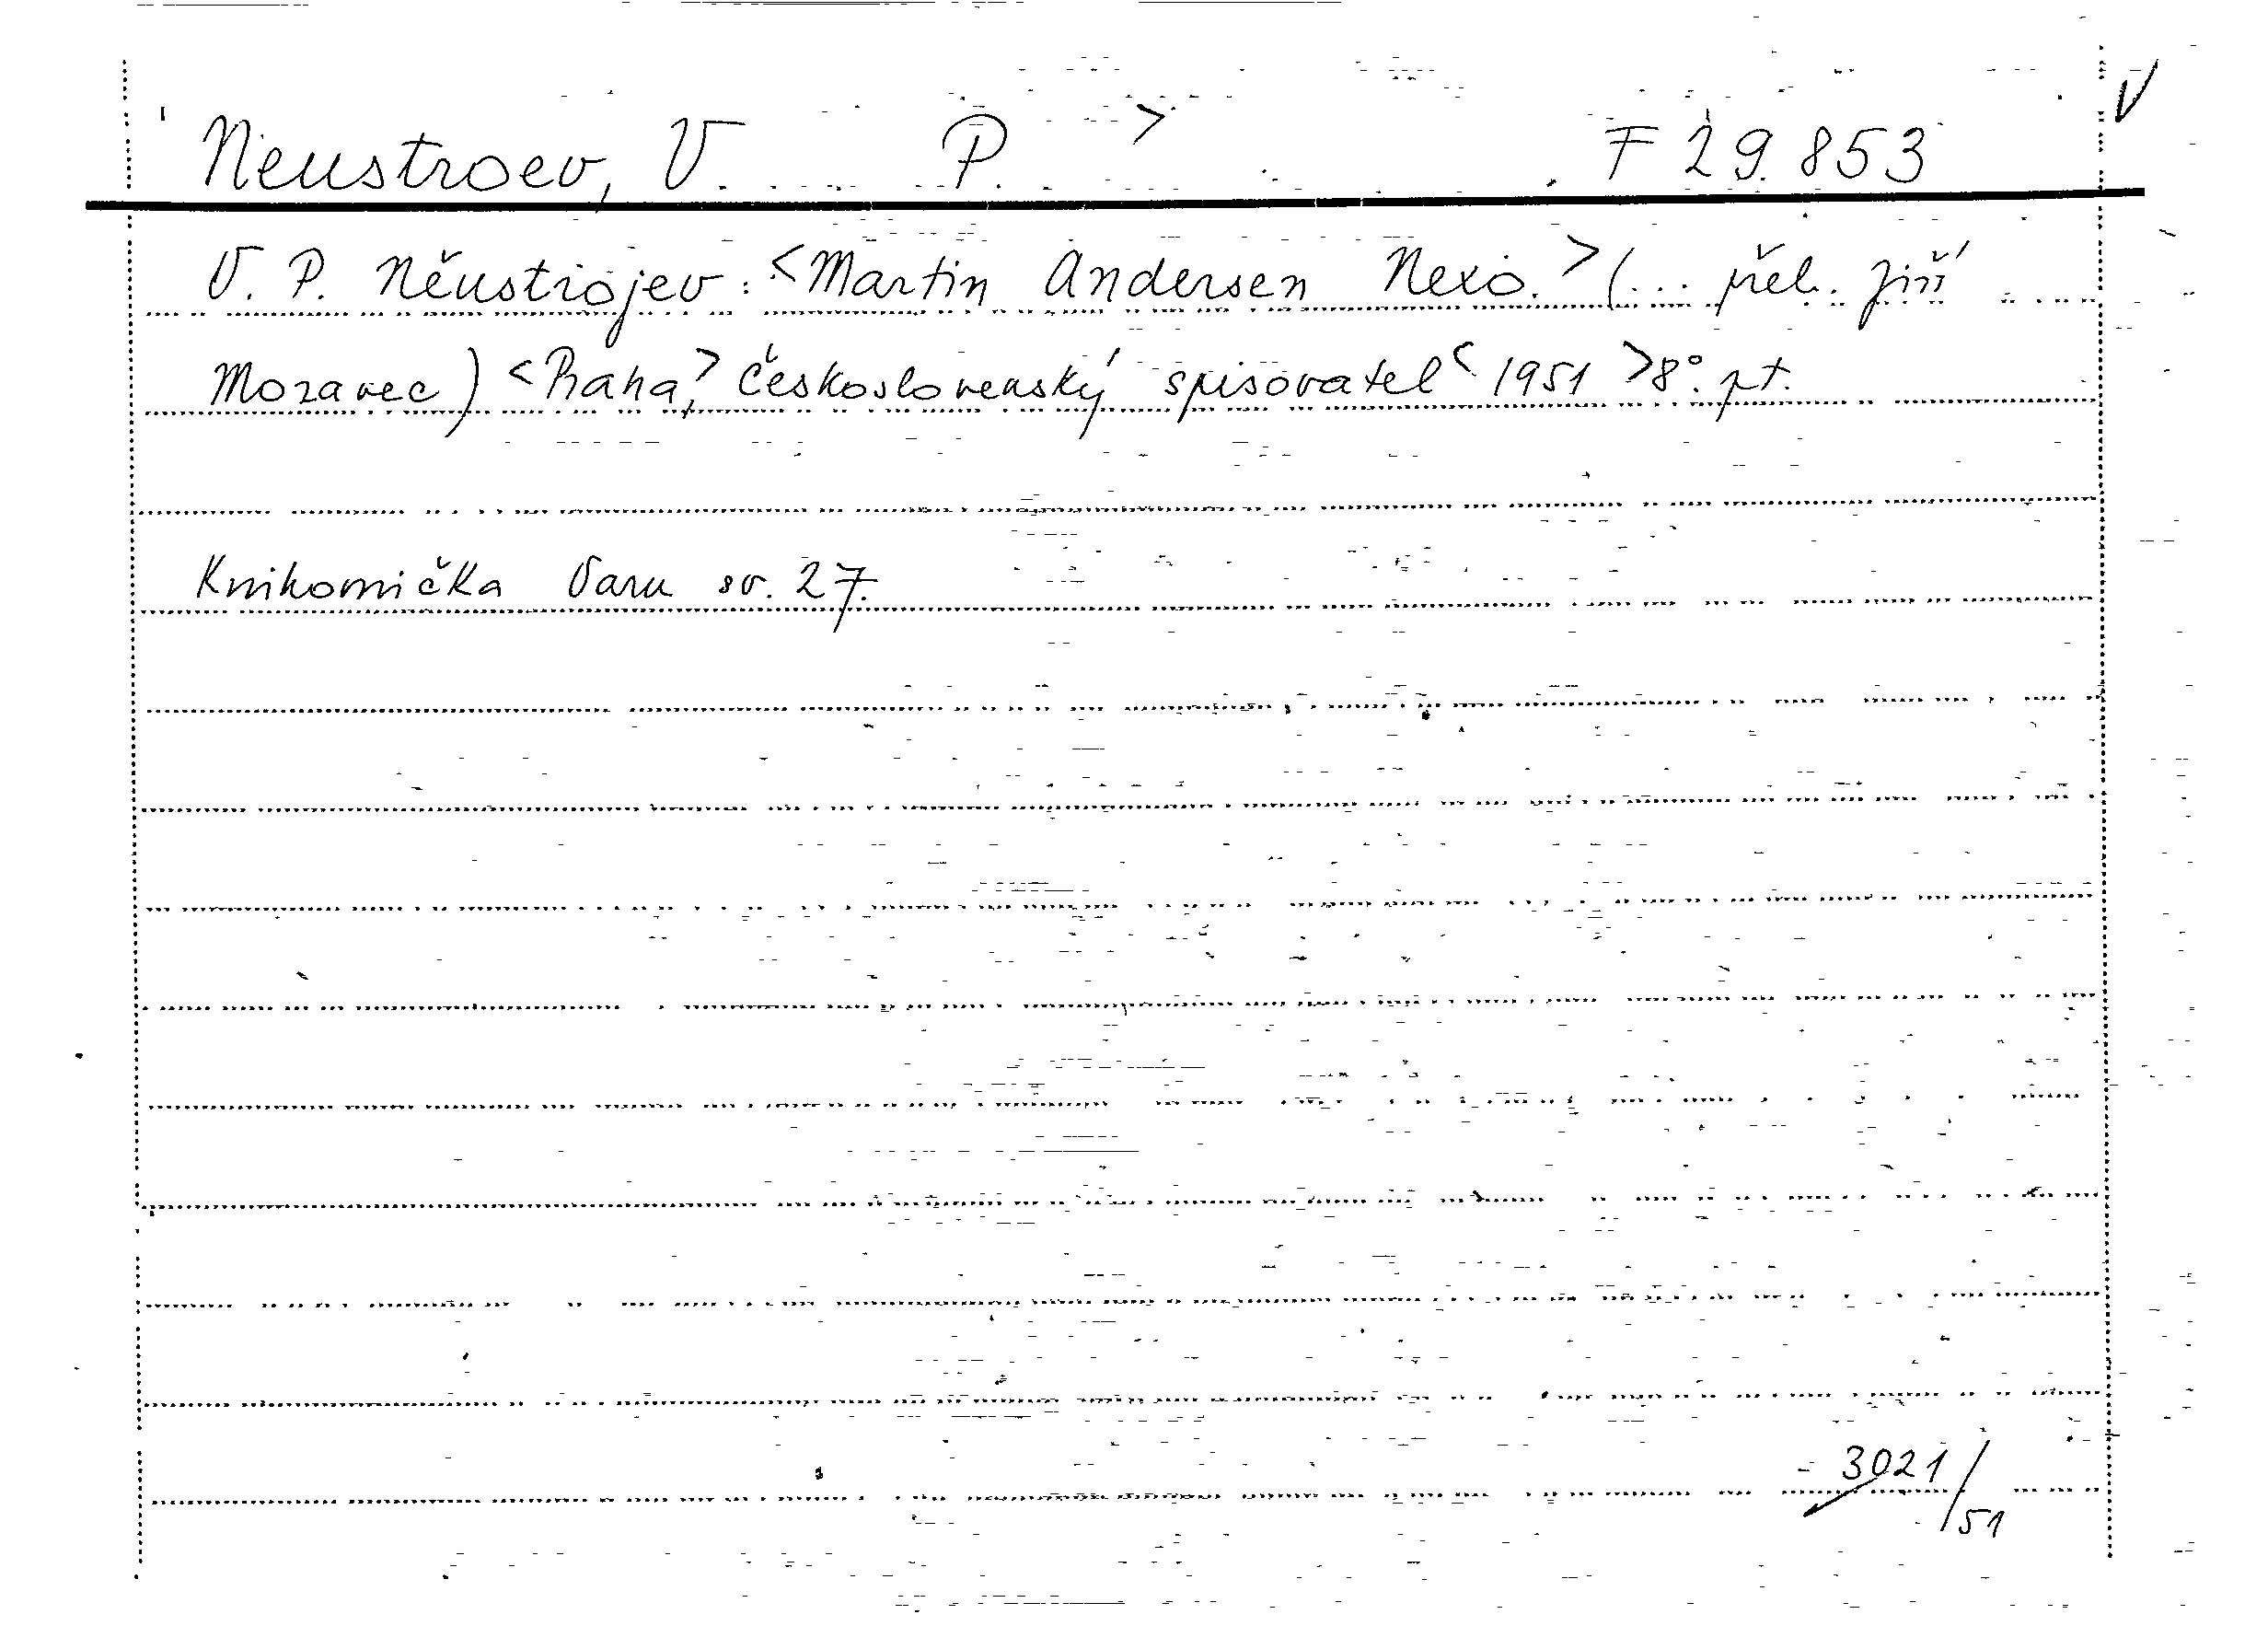 Neustroev, V. P. > F 29.853 V
V. P. Něustrojev: <Martin Andersen Nexö.> (... přel. Jiří
Moravec) <Praha,> Československý spisovatel < 1951 > 8°. pt.
Knihovnička Varu sv. 27.
3021/51